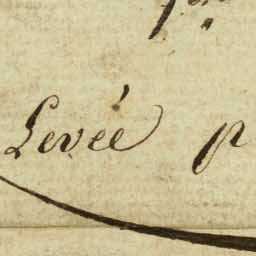 Levée p